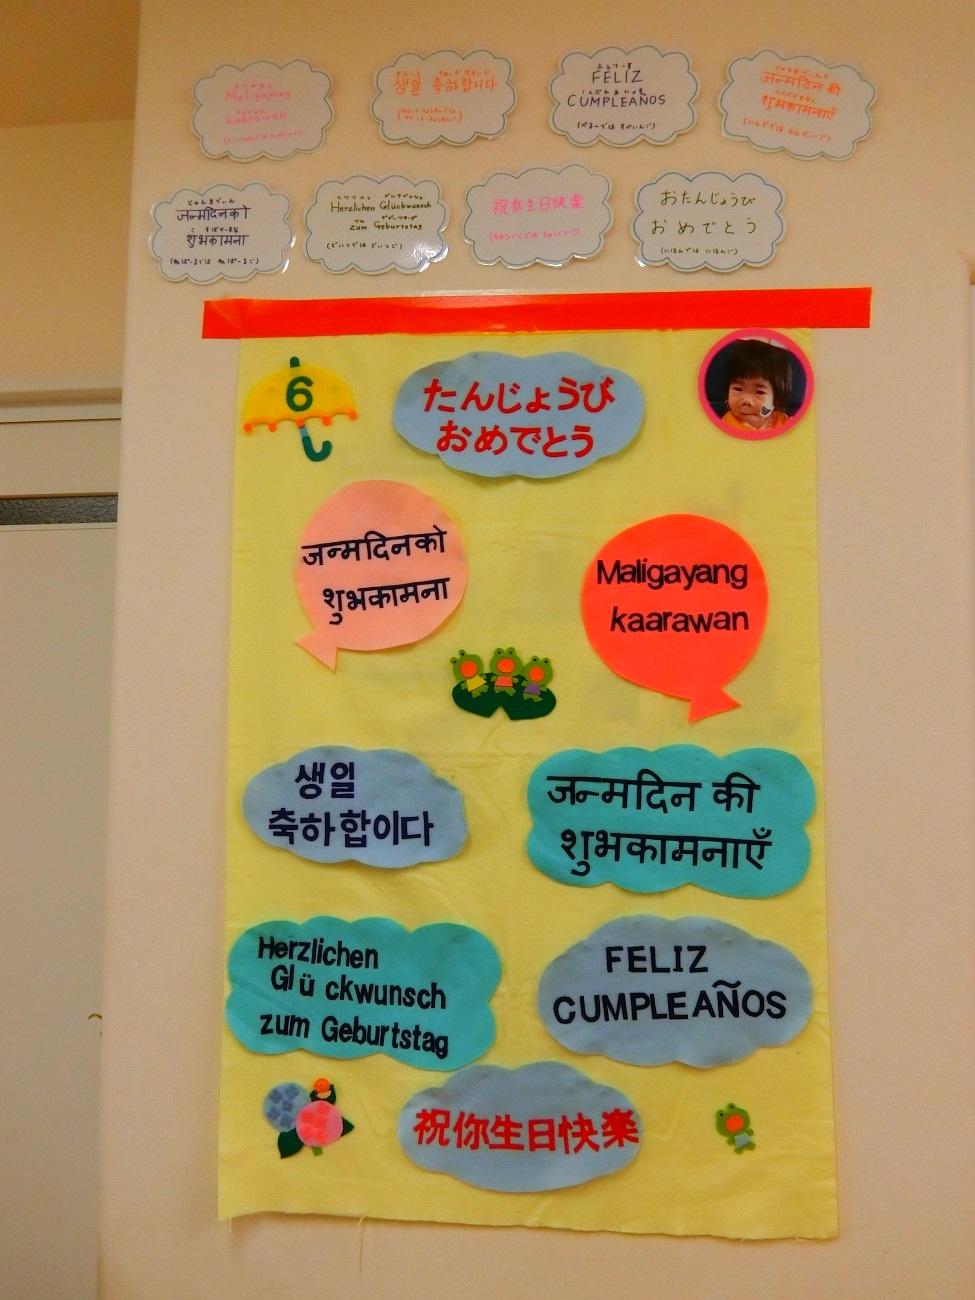 Maligayang
kaarawan
생일 축하합니다
FELIZ
CUMPLEAÑOS
(ぺるーでは すぺいんご)
जन्मदिन की
शुभकामनाएँ
जन्मदिनको
शुभकामना
(ねぱーるでは ねぱーるご)
Herzlichen Glückwunsch
zum Geburtstag
(どいつでは どいつご)
祝你生日快楽
(ちゅうごくでは ちゅうごくご)
おたんじょうび
おめでとう
(にほんでは にほんご)
6
たんじょうび
おめでとう
जन्मदिनको
शुभकामना
Maligayang
kaarawan
생일
축하합이다
जन्मदिन की
शुभकामनाएँ
Herzlichen
Glückwunsch
zum Geburtstag
FELIZ
CUMPLEAÑOS
祝你生日快楽